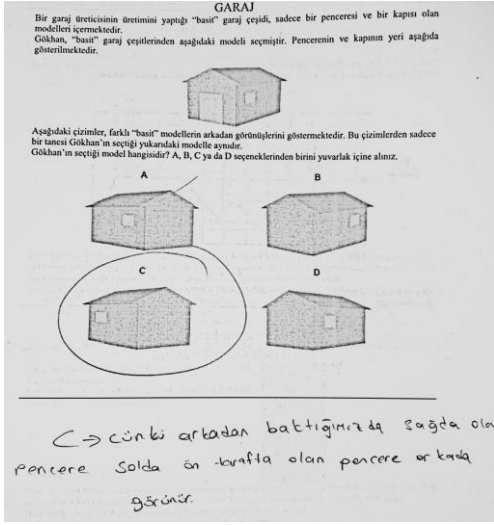 GARAJ
Bir garaj üreticisinin üretimini yaptığı “basit” garaj çeşidi, sadece bir penceresi ve bir kapısı olan
modelleri içermektedir.
Gökhan, “basit” garaj çeşitlerinden aşağıdaki modeli seçmiştir. Pencerenin ve kapının yeri aşağıda
gösterilmektedir.
Aşağıdaki çizimler, farklı “basit” modellerin arkadan görünüşlerini göstermektedir. Bu çizimlerden sadece
bir tanesi Gökhan’ın seçtiği yukarıdaki modelle aynıdır.
Gökhan’ın seçtiği model hangisidir? A, B, C ya da D seçeneklerinden birini yuvarlak içine alınız.
A
B
C
D
C → çünkü arkadan baktığımızda sağda olan
pencere solda ön tarafta olan pencere arkada
görünür.